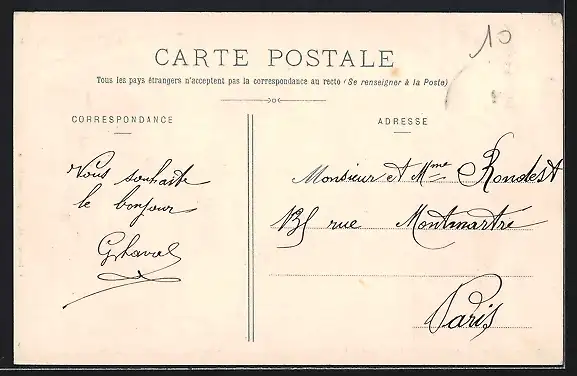 10
CARTE POSTALE
Tous les pays étrangers n'acceptent pas la correspondance au recto (Se renseigner à la Poste)
CORRESPONDANCE
ADRESSE
Vous souhaite
le bonjour
Monsieur et Mme Rondest
rue Montmartre
Paris